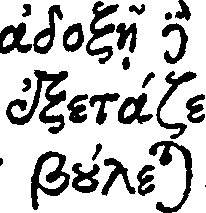 ἀδοξῇ
ἐξετάζε
βούλεται